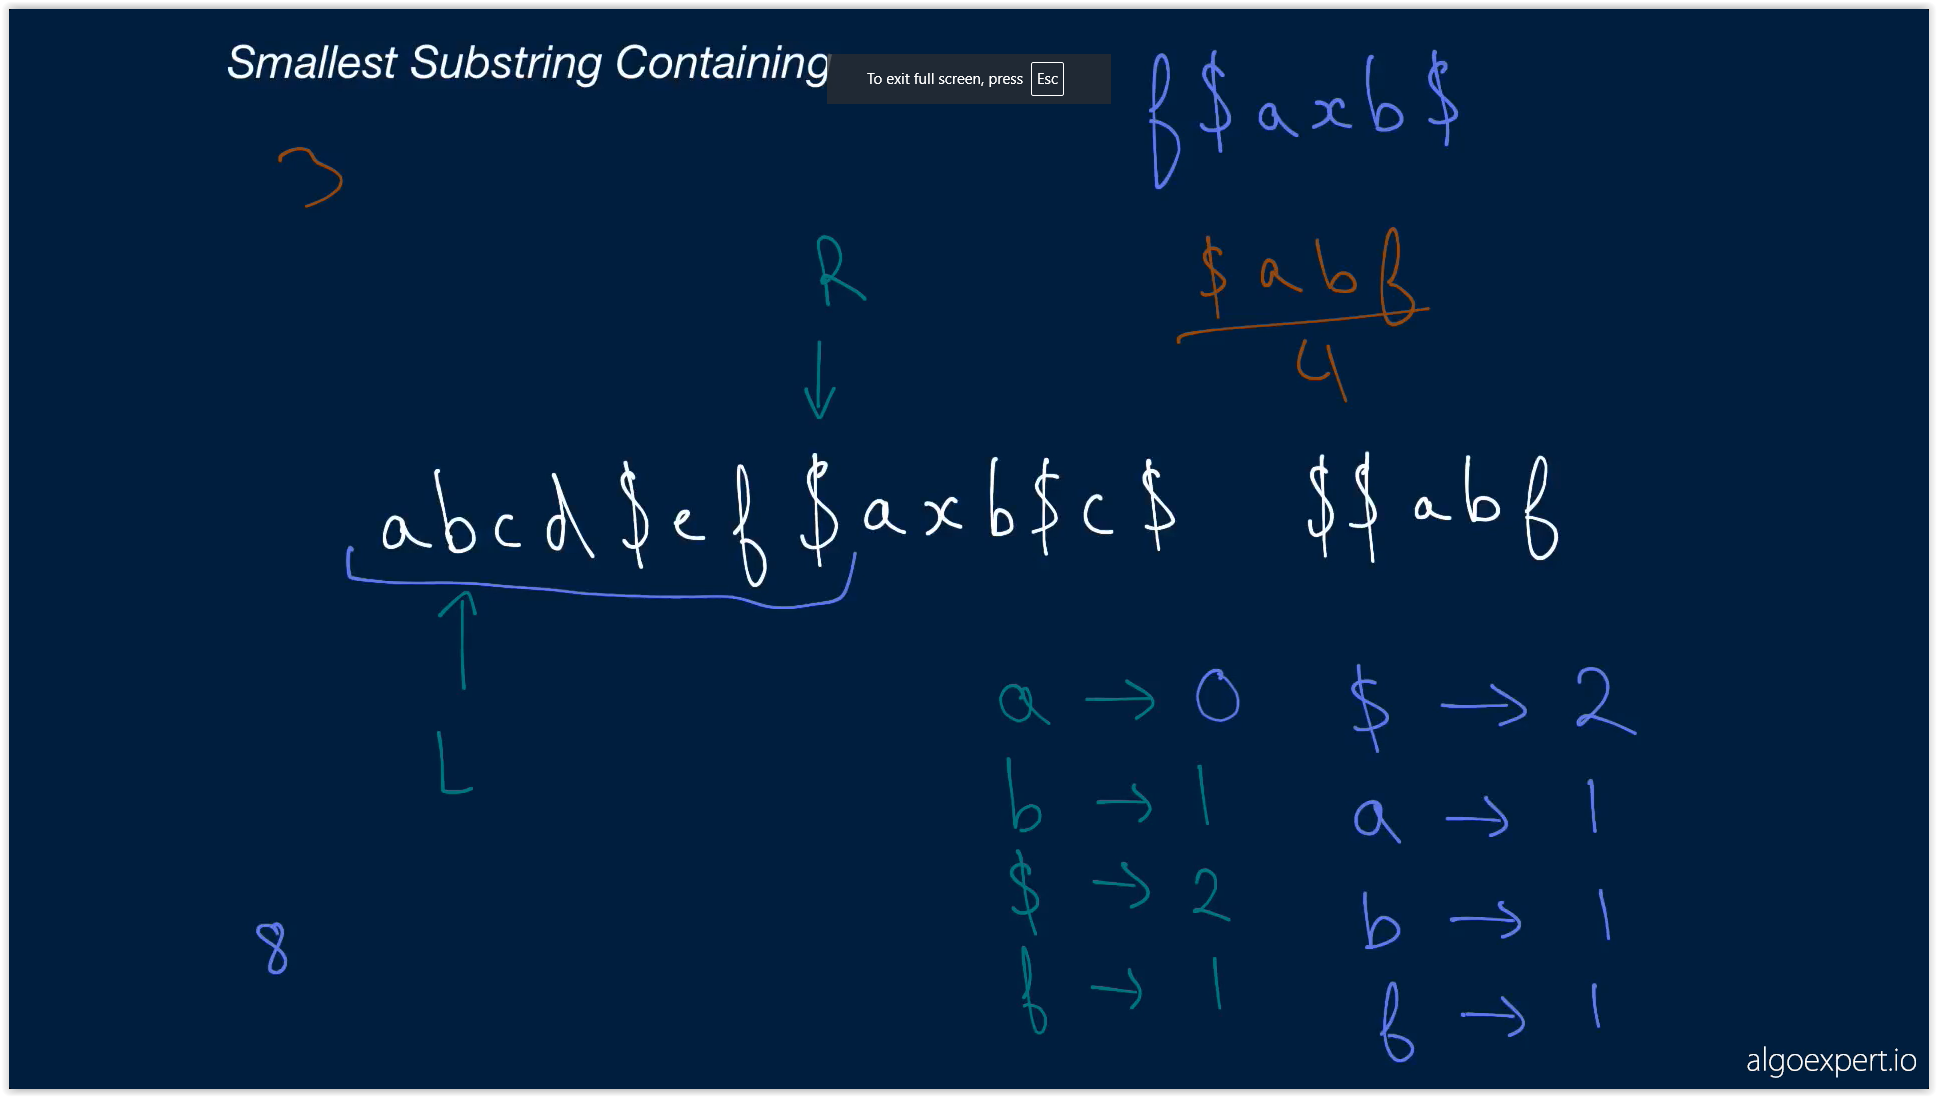 Smallest Substring Containing
To exit full screen, press Esc
f$axb$
3
R
$abf
4
abcd$ef$axb$c$ $$abf
L
a → 0 $ → 2
b → 1 a → 1
$ → 2 b → 1
f → 1 f → 1
8
algoexpert.io